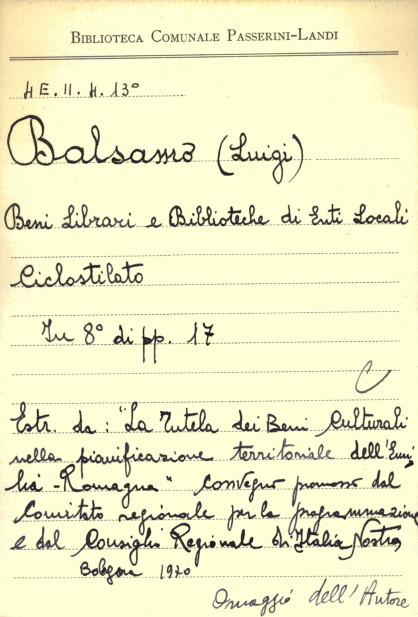 BIBLIOTECA COMUNALE PASSERINI-LANDI
4E. II. 4. 13°
Balsamo (Luigi)
Beni Librari e Biblioteche di Enti Locali
Ciclostilato
In 8° di pp. 17
C
Estr. da: "La Tutela dei Beni Culturali
nella pianificazione territoriale dell'Emi
lia-Romagna" Convegno promosso dal
Comitato regionale per la programmazione
e dal Consiglio Regionale di Italia Nostra
Bologna 1970
Omaggio dell'Autore